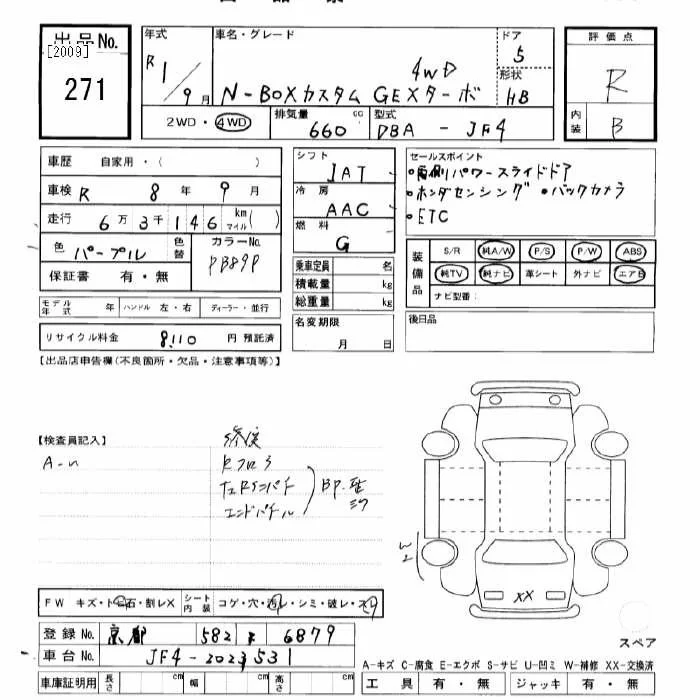 出品No.
[2009]
271
年式
R1/9月
車名・グレード
4WD
N-BOXカスタム GEXターボ
ドア
5
形状
HB
評価点
R
内装
B
2WD・4WD
排気量
660 cc
型式
DBA - JF4
車歴 自家用・( )
車検 R 8年 9月
走行 6万3千146 km マイル( )
色 パープル 色替 カラーNo. PB89P
保証書 有・無
モデル年式 年 ハンドル 左・右 ディーラー・並行
リサイクル料金 8,110 円 預託済
シフト
IAT
冷房
AAC
燃料
G
乗車定員 名
積載量 kg
総重量 kg
名変期限
月 日
セールスポイント
・両側パワースライドドア
・ホンダセンシング ・バックカメラ
・ETC
装備品
S/R 純A/W P/S P/W ABS
純TV 純ナビ 革シート 外ナビ エアB
ナビ型番:
後日品
【出品店申告欄(不良箇所・欠品・注意事項等)】
【検査員記入】
A-U
修復
エンドパネル
FW キズ・トビ石・割レX シート内装 コゲ・穴・汚レ・シミ・破レ・スレ
XX
登録No. 京都 582 6879
車台No. JF4-2023531
車庫証明用 長さ cm 幅 cm 高さ cm
スペア
A-キズ C-腐食 E-エクボ S-サビ U-凹ミ W-補修 XX-交換済
工具 有・無 ジャッキ 有・無